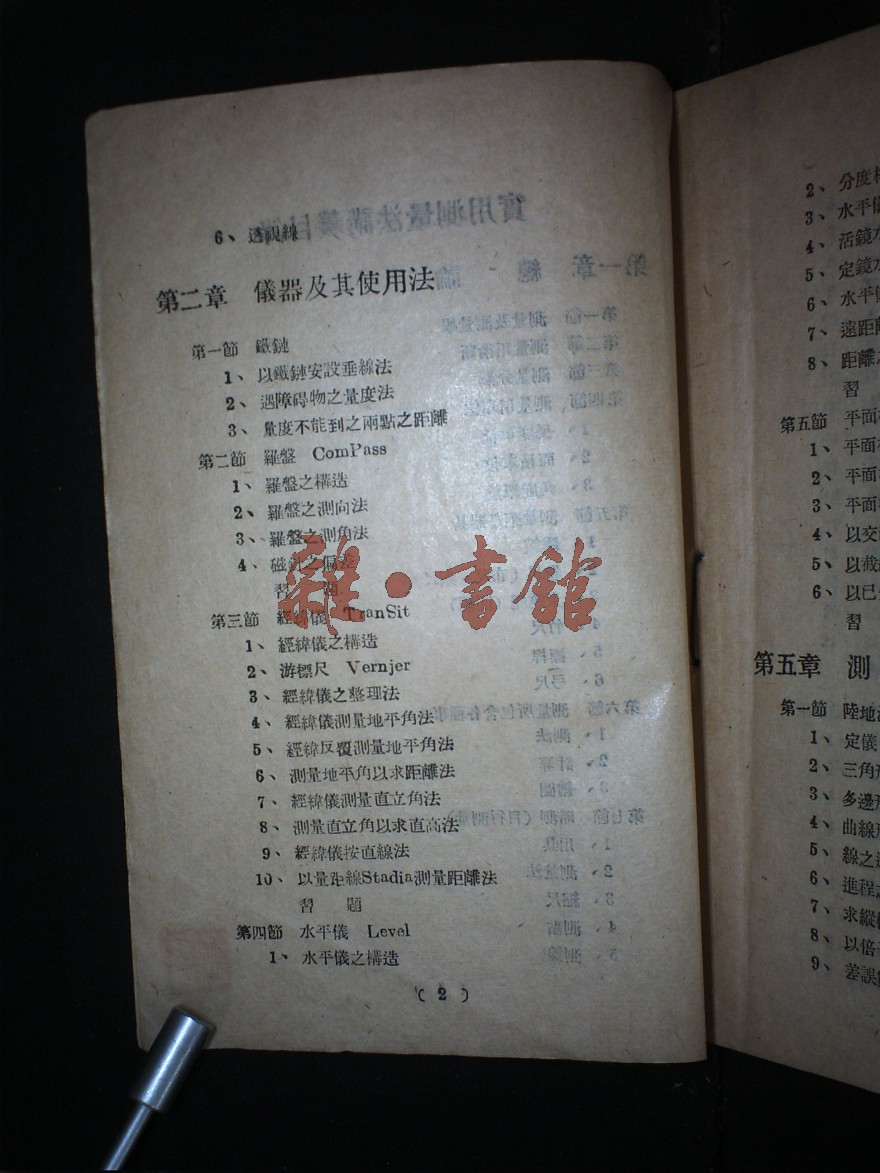 6、透視線
第二章 儀器及其使用法
第一節 鐵鏈
1、以鐵鏈安設垂線法
2、遇障碍物之量度法
3、量度不能到之兩點之距離
第二節 羅盤 ComPass
1、羅盤之構造
2、羅盤之測向法
3、羅盤之測角法
4、磁針之偏差
習 題
第三節 經緯儀 TranSit
1、經緯儀之構造
2、游標尺 Vernjer
3、經緯儀之整理法
4、經緯儀測量地平角法
5、經緯反覆測量地平角法
6、測量地平角以求距離法
7、經緯儀測量直立角法
8、測量直立角以求直高法
9、經緯儀按直線法
10、以量距線Stadia測量距離法
習 題
第四節 水平儀 Level
1、水平儀之構造
( 2 )
雜·書館
2、分度
3、水平儀
4、活鏡水
5、定鏡水
6、水平儀
7、遠距離
8、距離之
習
第五節 平面
1、平面
2、平面
3、平面
4、以交
5、以截
6、以已
習
第五章 測
第一節 陸地
1、定儀
2、三角形
3、多邊形
4、曲線形
5、線之
6、進程之
7、求縱
8、以倍
9、差誤